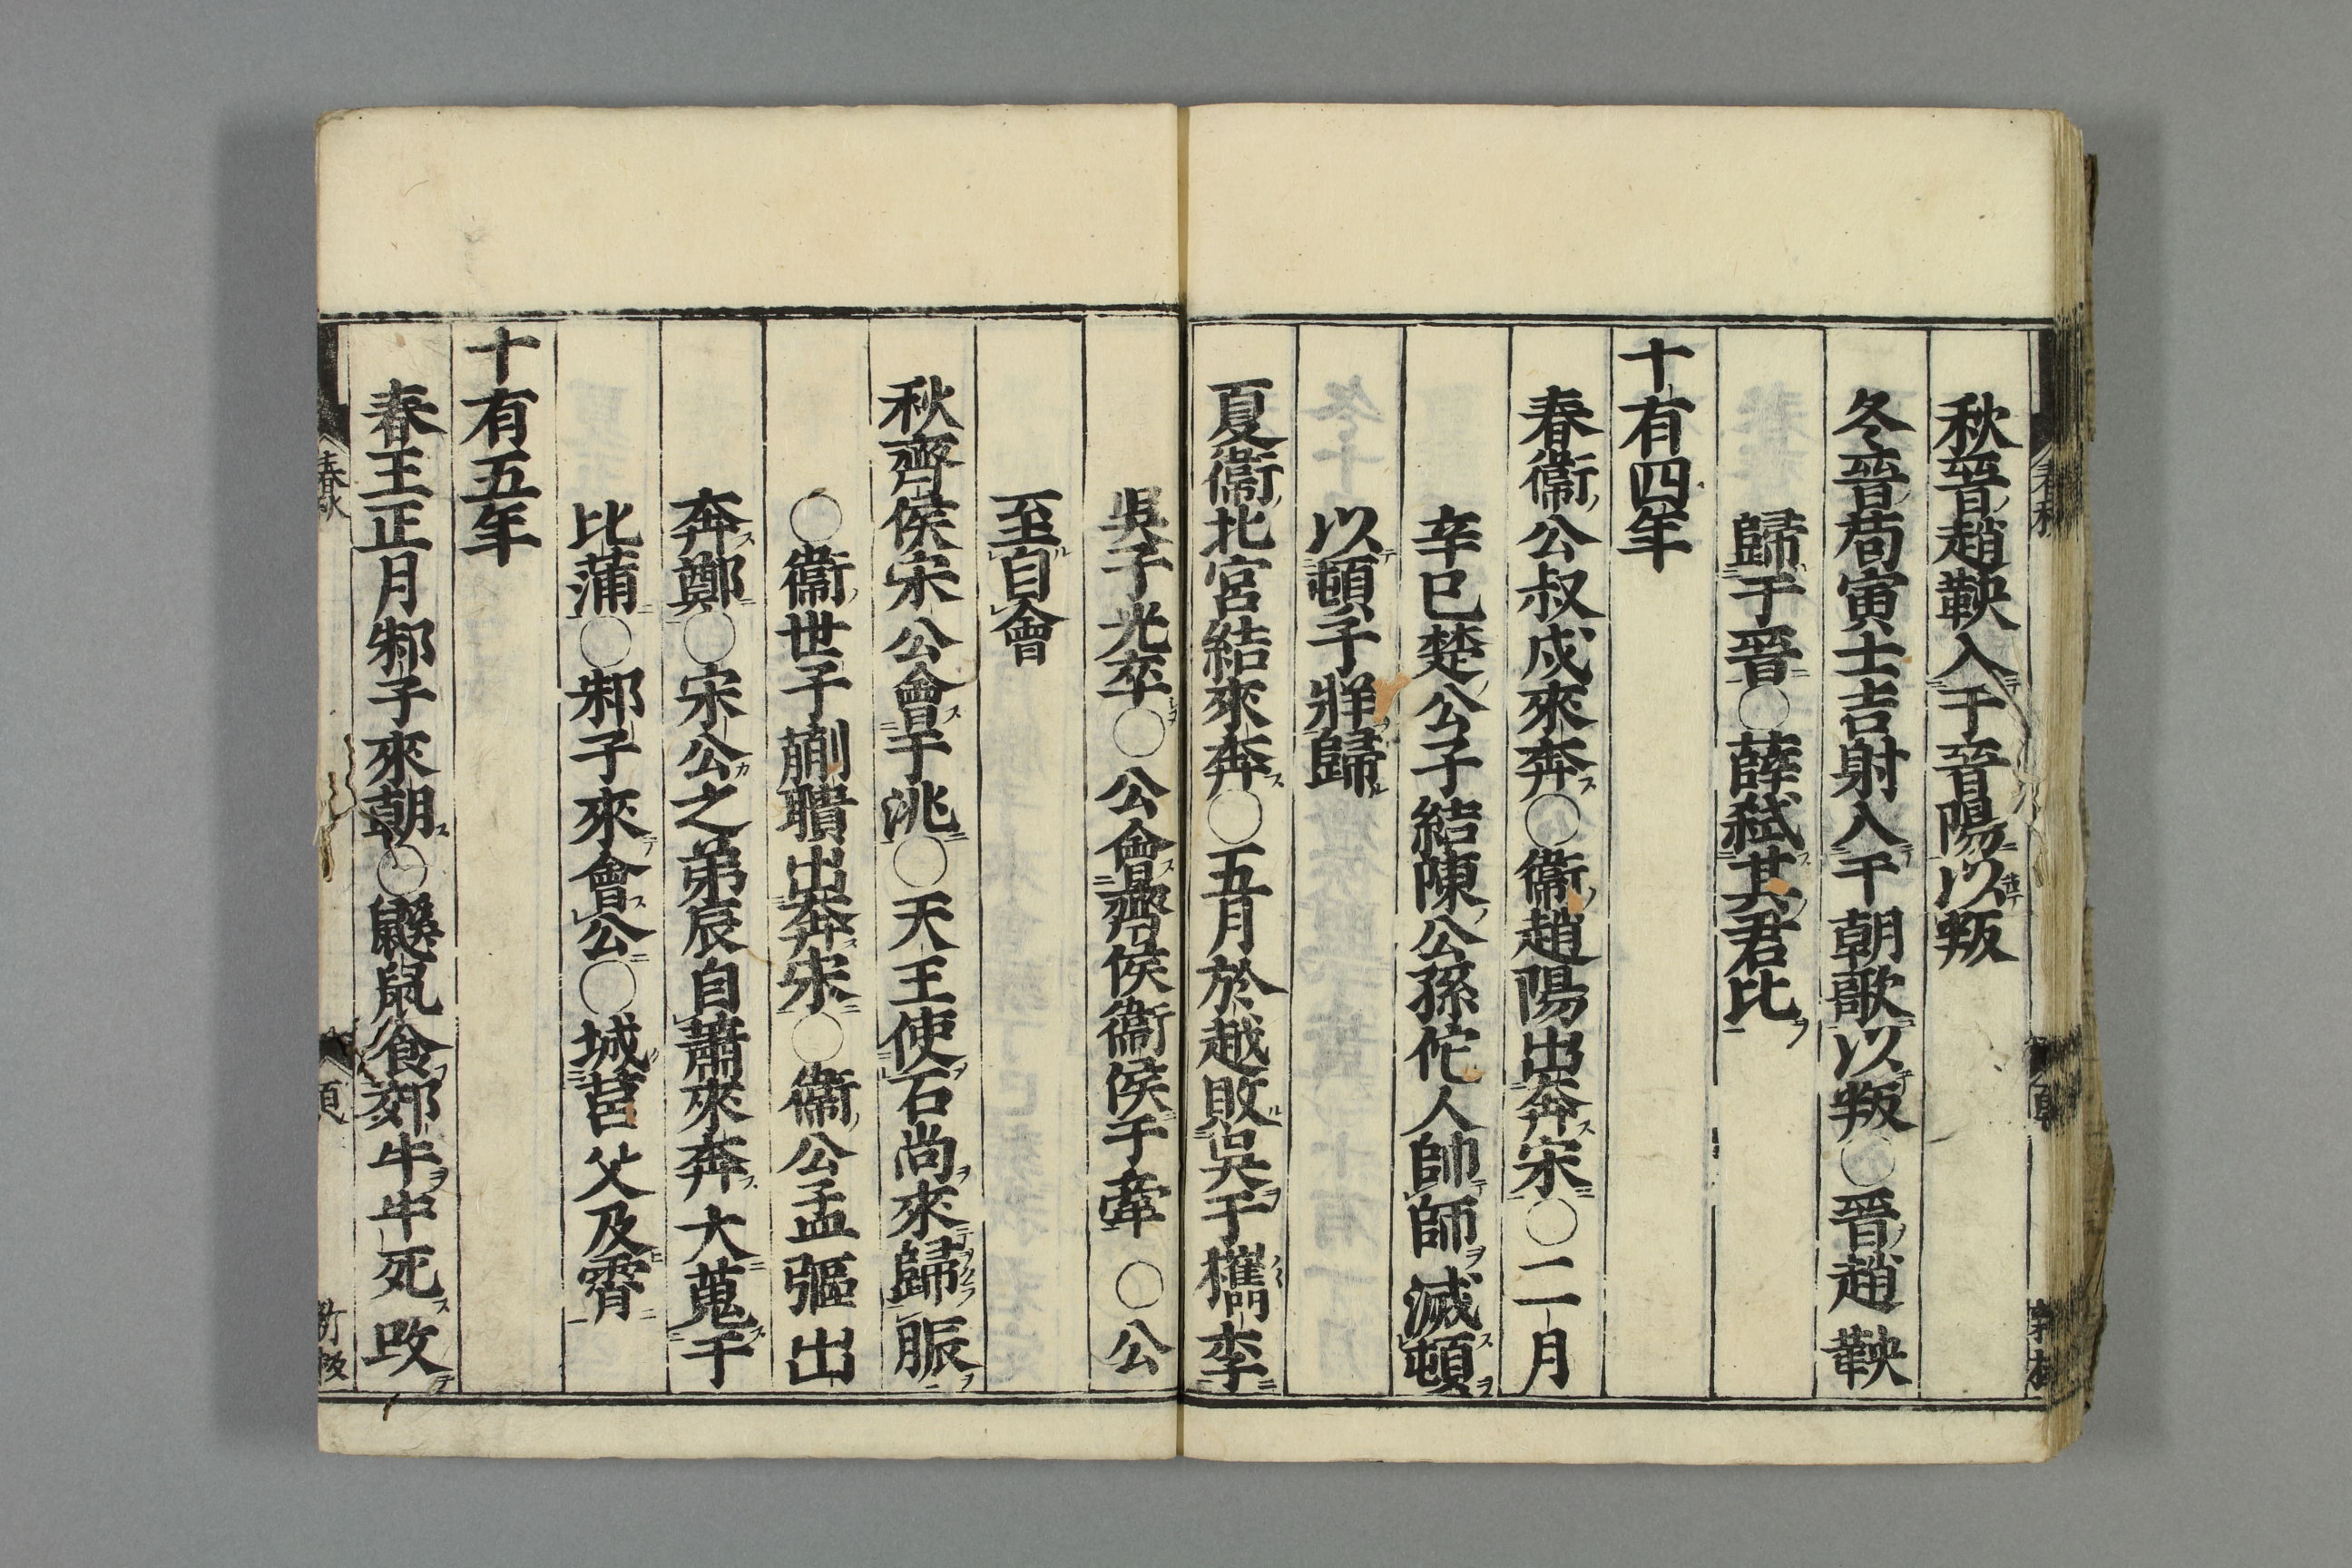 秋晉趙鞅入于晉陽以叛
冬晉荀寅士吉射入于朝歌以叛○晉趙鞅
歸于晉○薛弑其君比
十有四年
春衞公叔戍來奔○衞趙陽出奔宋○二月
辛巳楚公子結陳公孫佗人帥師滅頓
以頓子牂歸
夏衞北宮結來奔○五月於越敗吳于檇李
吳子光卒○公會齊侯衞侯于牽○公
至自會
秋齊侯宋公會于洮○天王使石尚來歸脤
○衞世子蒯聵出奔宋○衞公孟彄出
奔鄭○宋公之弟辰自蕭來奔大蒐于
比蒲○邾子來會公○城莒父及霄
十有五年
春王正月邾子來朝○鼷鼠食郊牛牛死改
春秋